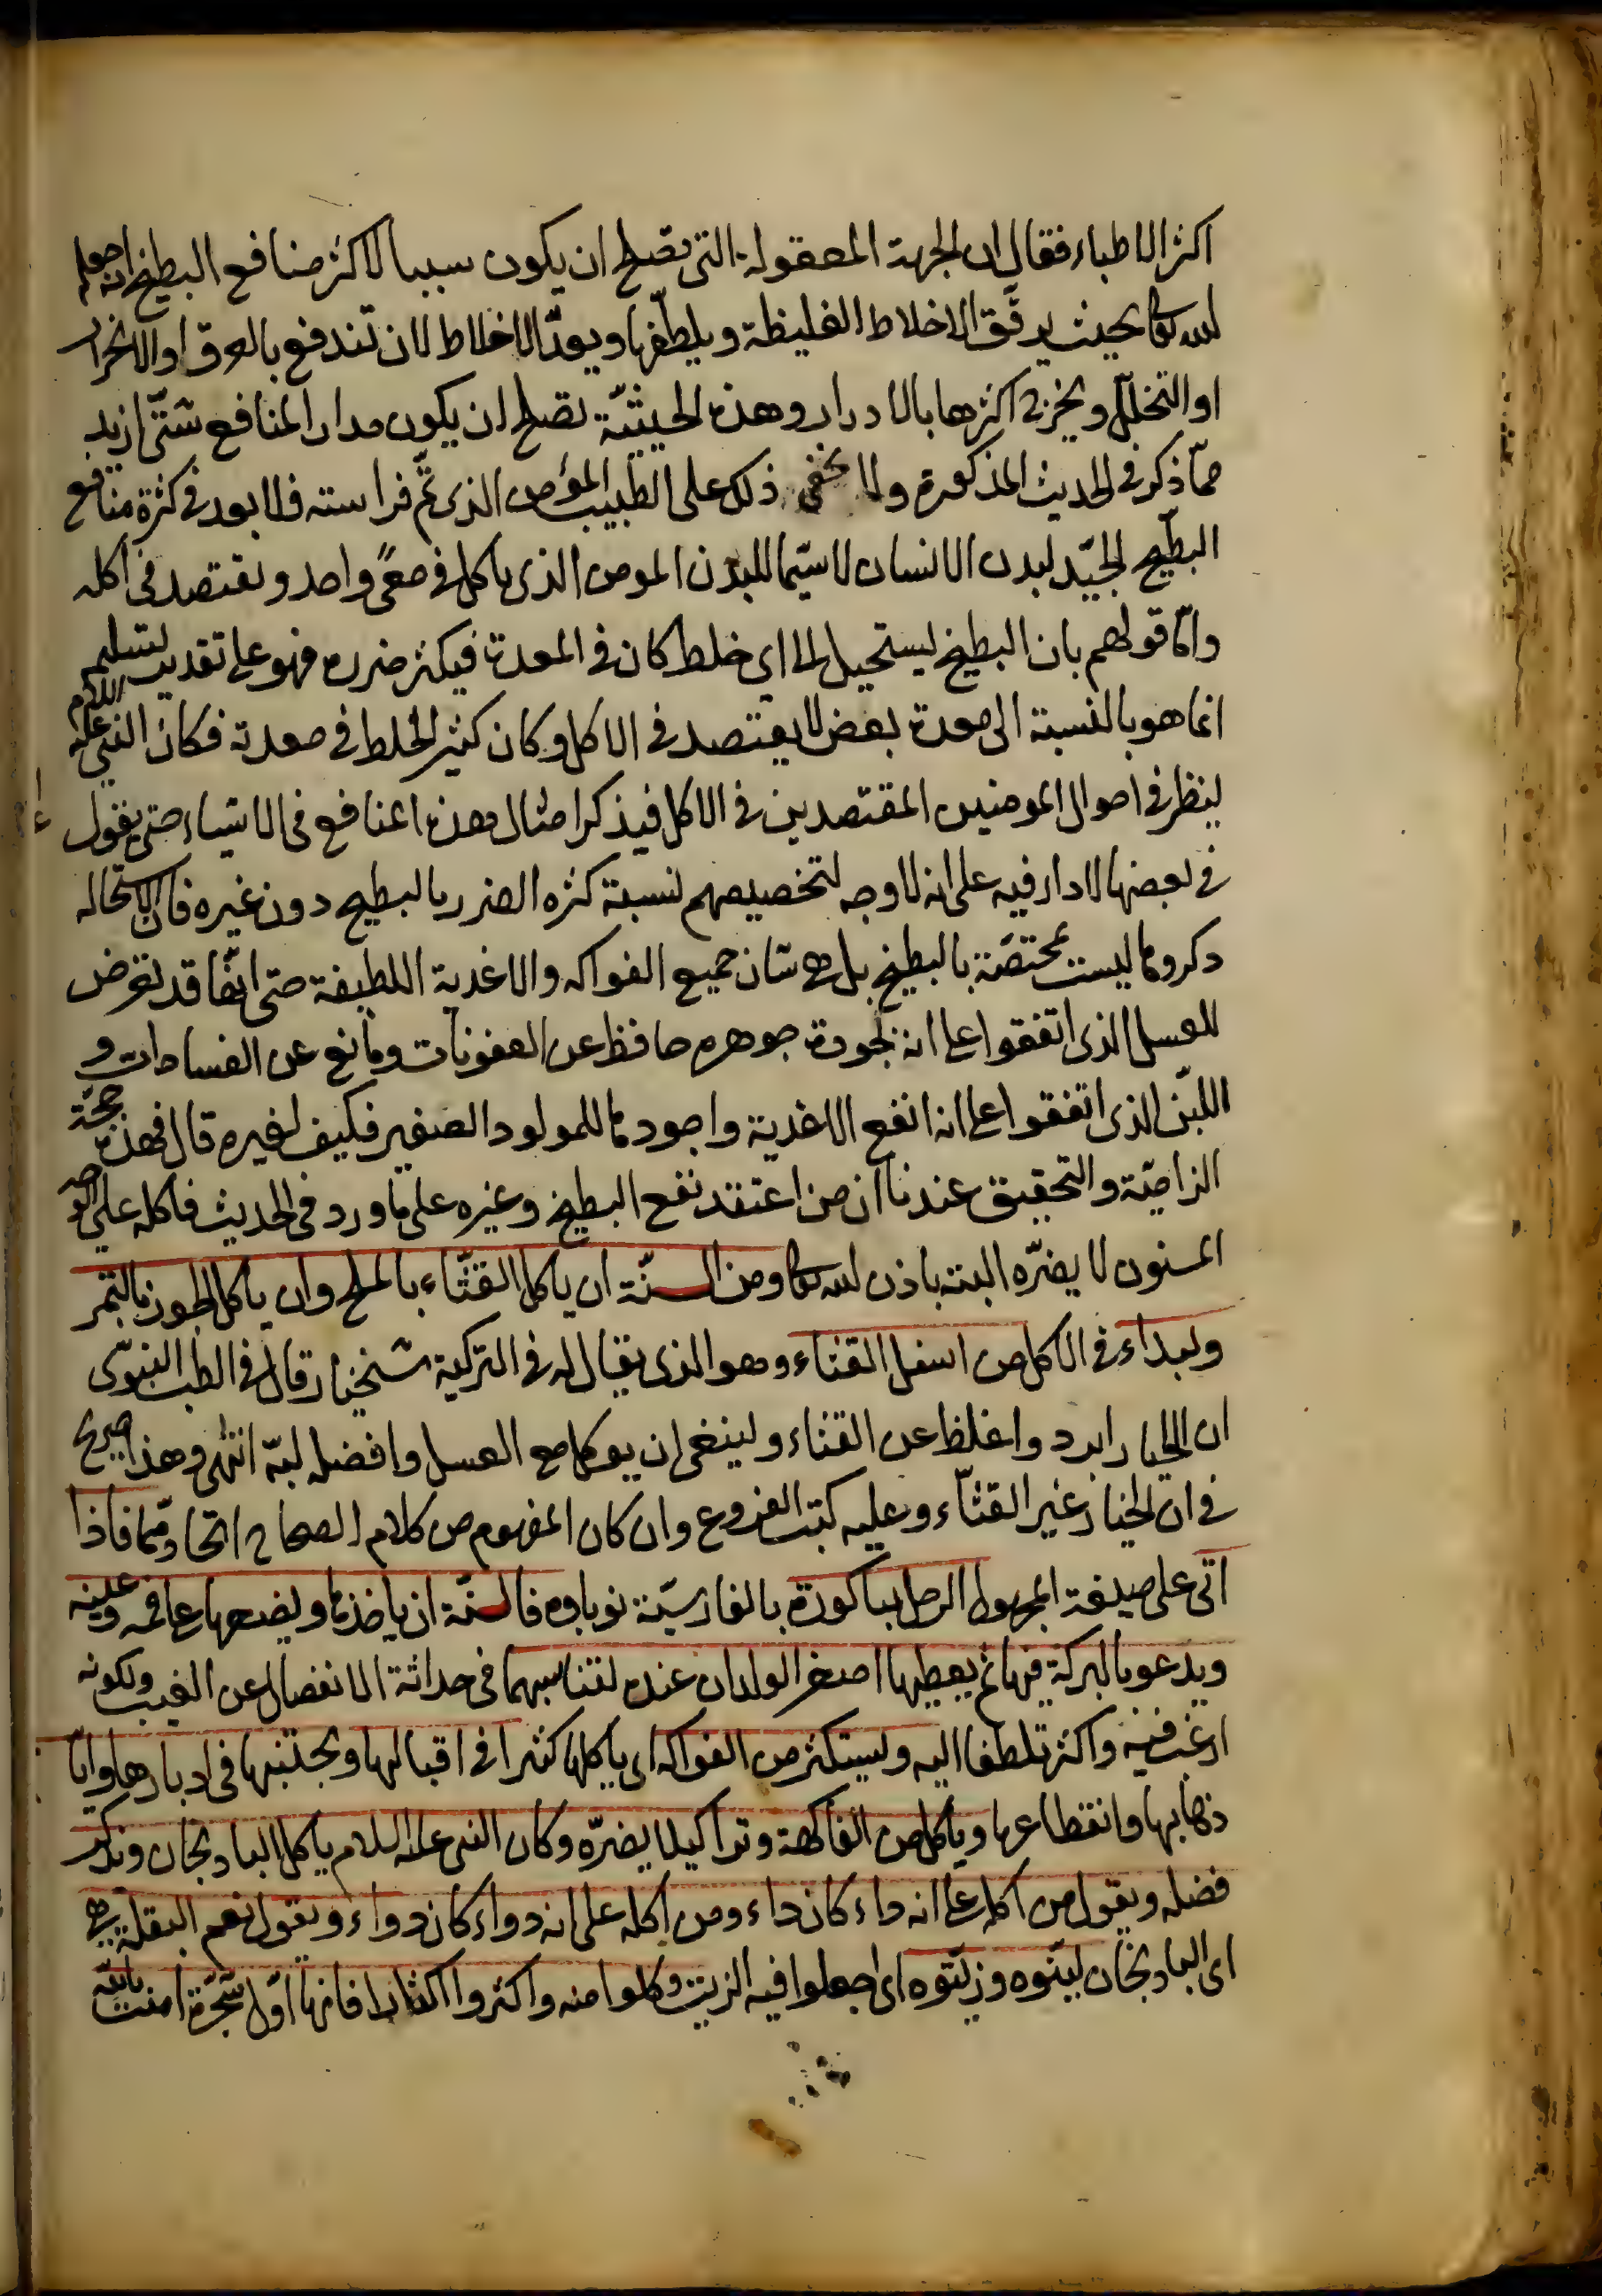 اكثر الاطباء فقال ان الجهة المعقولة التى تصلح ان يكون سببا لاكثر منافع البطيخ انه جعله
الله تعالى بحيث يرقّق الاخلاط الغليظة ويلطّفها ويعدّ الاخلاط لان تندفع بالعرق او الانحدار
او التخلّل ويخرج اكثرها بالادرار وهذه الحيثيّة تصلح ان يكون مدار المنافع شتّى ازيد
ممّا ذكر فى الحديث المذكورة ولا يخفى ذلك على الطبيب المؤمن الذى تمّ فراسته فلا بعد فى كثرة منافع
البطّيخ الجيّد لبدن الانسان لا سيّما للبدن المومن الذى ياكل فى معًى واحد ويقتصد فى اكله
وامّا قولهم بان البطيخ يستحيل الى اى خلط كان فى المعدة فيكثر ضرره فهو على تقدير تسليمه
انما هو بالنسبة الى معدة بعض لا يقتصد فى الاكل وكان كثير الخلط فى معدته فكان النبى عليه السلام
ينظر فى احوال المومنين المقتصدين فى الاكل فيذكر امثال هذه المنافع فى الاشياء حتى يقول
فى بعضها لا داء فيه على انه لا وجه لتخصيصهم نسبة كثرة الضرر بالبطيخ دون غيره فان الاستحالة
ذكروها ليست بمختصّة بالبطيخ بل هى شان جميع الفواكه والاغذية اللطيفة حتى انّها قد تعرض
للعسل الذى اتفقوا على انه لجودة جوهره حافظ عن العفونات ومانع عن الفسادات و
اللبن الذى اتفقوا على انه انفع الاغذية واجودها للمولود الصغير فكيف لغيره قال فهذه حجّة
الزاميّة والتحقيق عندنا ان من اعتقد نفع البطيخ وغيره على ما ورد فى الحديث فاكله على الوجه
المسنون لا يضرّه البتة باذن الله تعالى ومن السنّة ان ياكل القثّاء بالملح وان ياكل الجوز بالتمر
ويبداء فى الاكل من اسفل القثاء وهو الذى يقال له فى التركية شنخيار قال فى الطب النبوّى
ان الخيار ابرد واغلظ عن القثاء وينبغى ان يوكل مع العسل وافضله لبّه انتهى وهذا صريح
فى ان الخيار غير القثّاء وعليه كتب الفروع وان كان المفهوم من كلام الصحاح اتحادهما فاذا
اتى على صيغة المجهول الرجل بباكورة بالفارسيّة نوباوه فالسنّة ان ياخذها ويضعها على فمه وعينيه
ويدعو بالبركة فيها ثم يعطيها اصغر الولدان عنده لتناسبهما فى حداثة الانفصال عن الغيب ولكونه
ارغب فيه واكثر تلطفا اليه ويستكثر من الفواكه اى ياكلها كثيرا فى اقبالها ويجتنبها فى ادبارها وابّا
ذهابها وانقطاعها وياكل من الفاكهة وترا كيلا يضرّه وكان النبى عليه السلام ياكل البادنجان ويذكر
فضله ويقول من اكله على انه داء كان داء ومن اكله على انه دواء كان دواء ويقول نعم البقلة هى
اى البادنجان ليّنوه وزيّتوه اى اجعلوا فيه الزيت وكلوا منه واكثروا اكثارا فانها اوّل شجرة امنت بالله